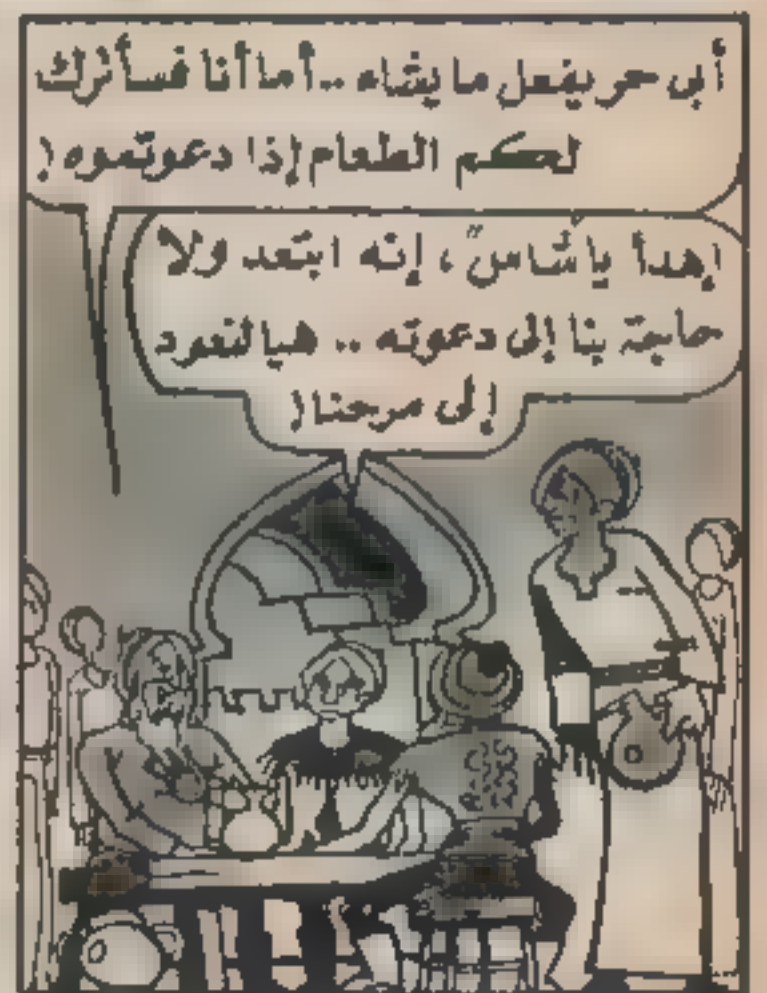 أبى حر يفعل ما يشاء .. أما أنا فسأترك
لكم الطعام إذا دعوتموه !
إهدأ يا "شاس" ، إنه ابتعد ولا
حاجة بنا إلى دعوته .. هيا لنعود
إلى مرحنا !